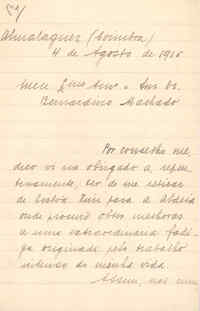 Almalaguez (Coimbra)
4 de Agosto de 1916
Meu Exmo Am. e Snr Dr.
Bernardino Machado
Por conselho me-
dico vi-me obrigado a repen-
tinamente, ter de me retirar
de Lisboa para a Abadia
onde procuro obter melhoras
a uma extraordinaria fadi-
ga originada pelo trabalho
intenso da minha vida.
Assim, nas